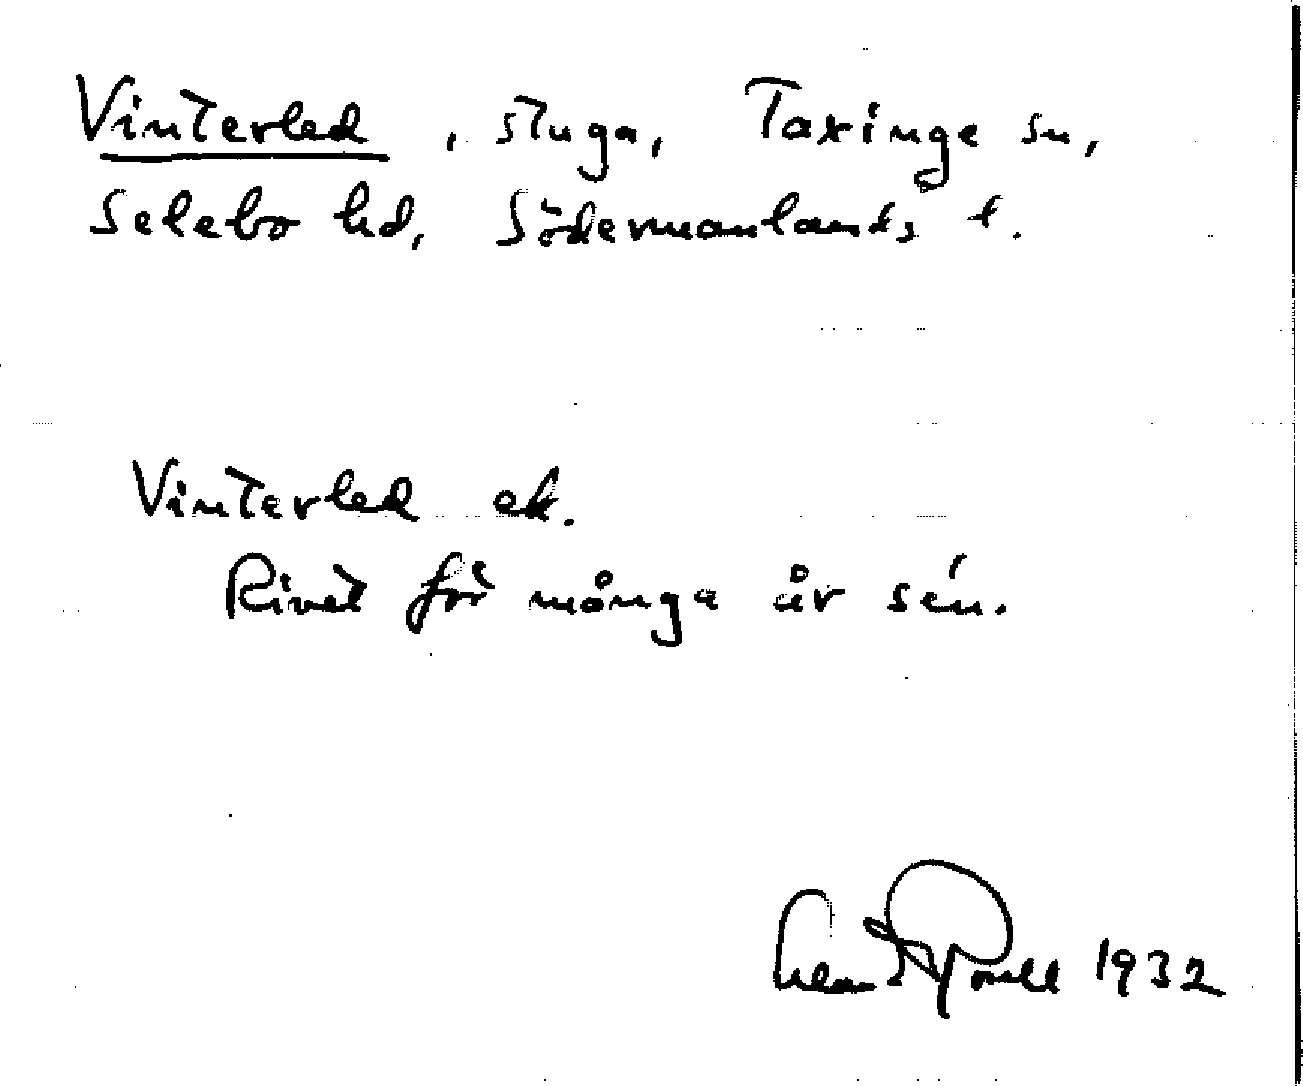 Vinterled, stuga, Taxinge sn,
Selebo hd, Södermanlands l.
Vinterled ek.
Rivet för många år sén.
1932